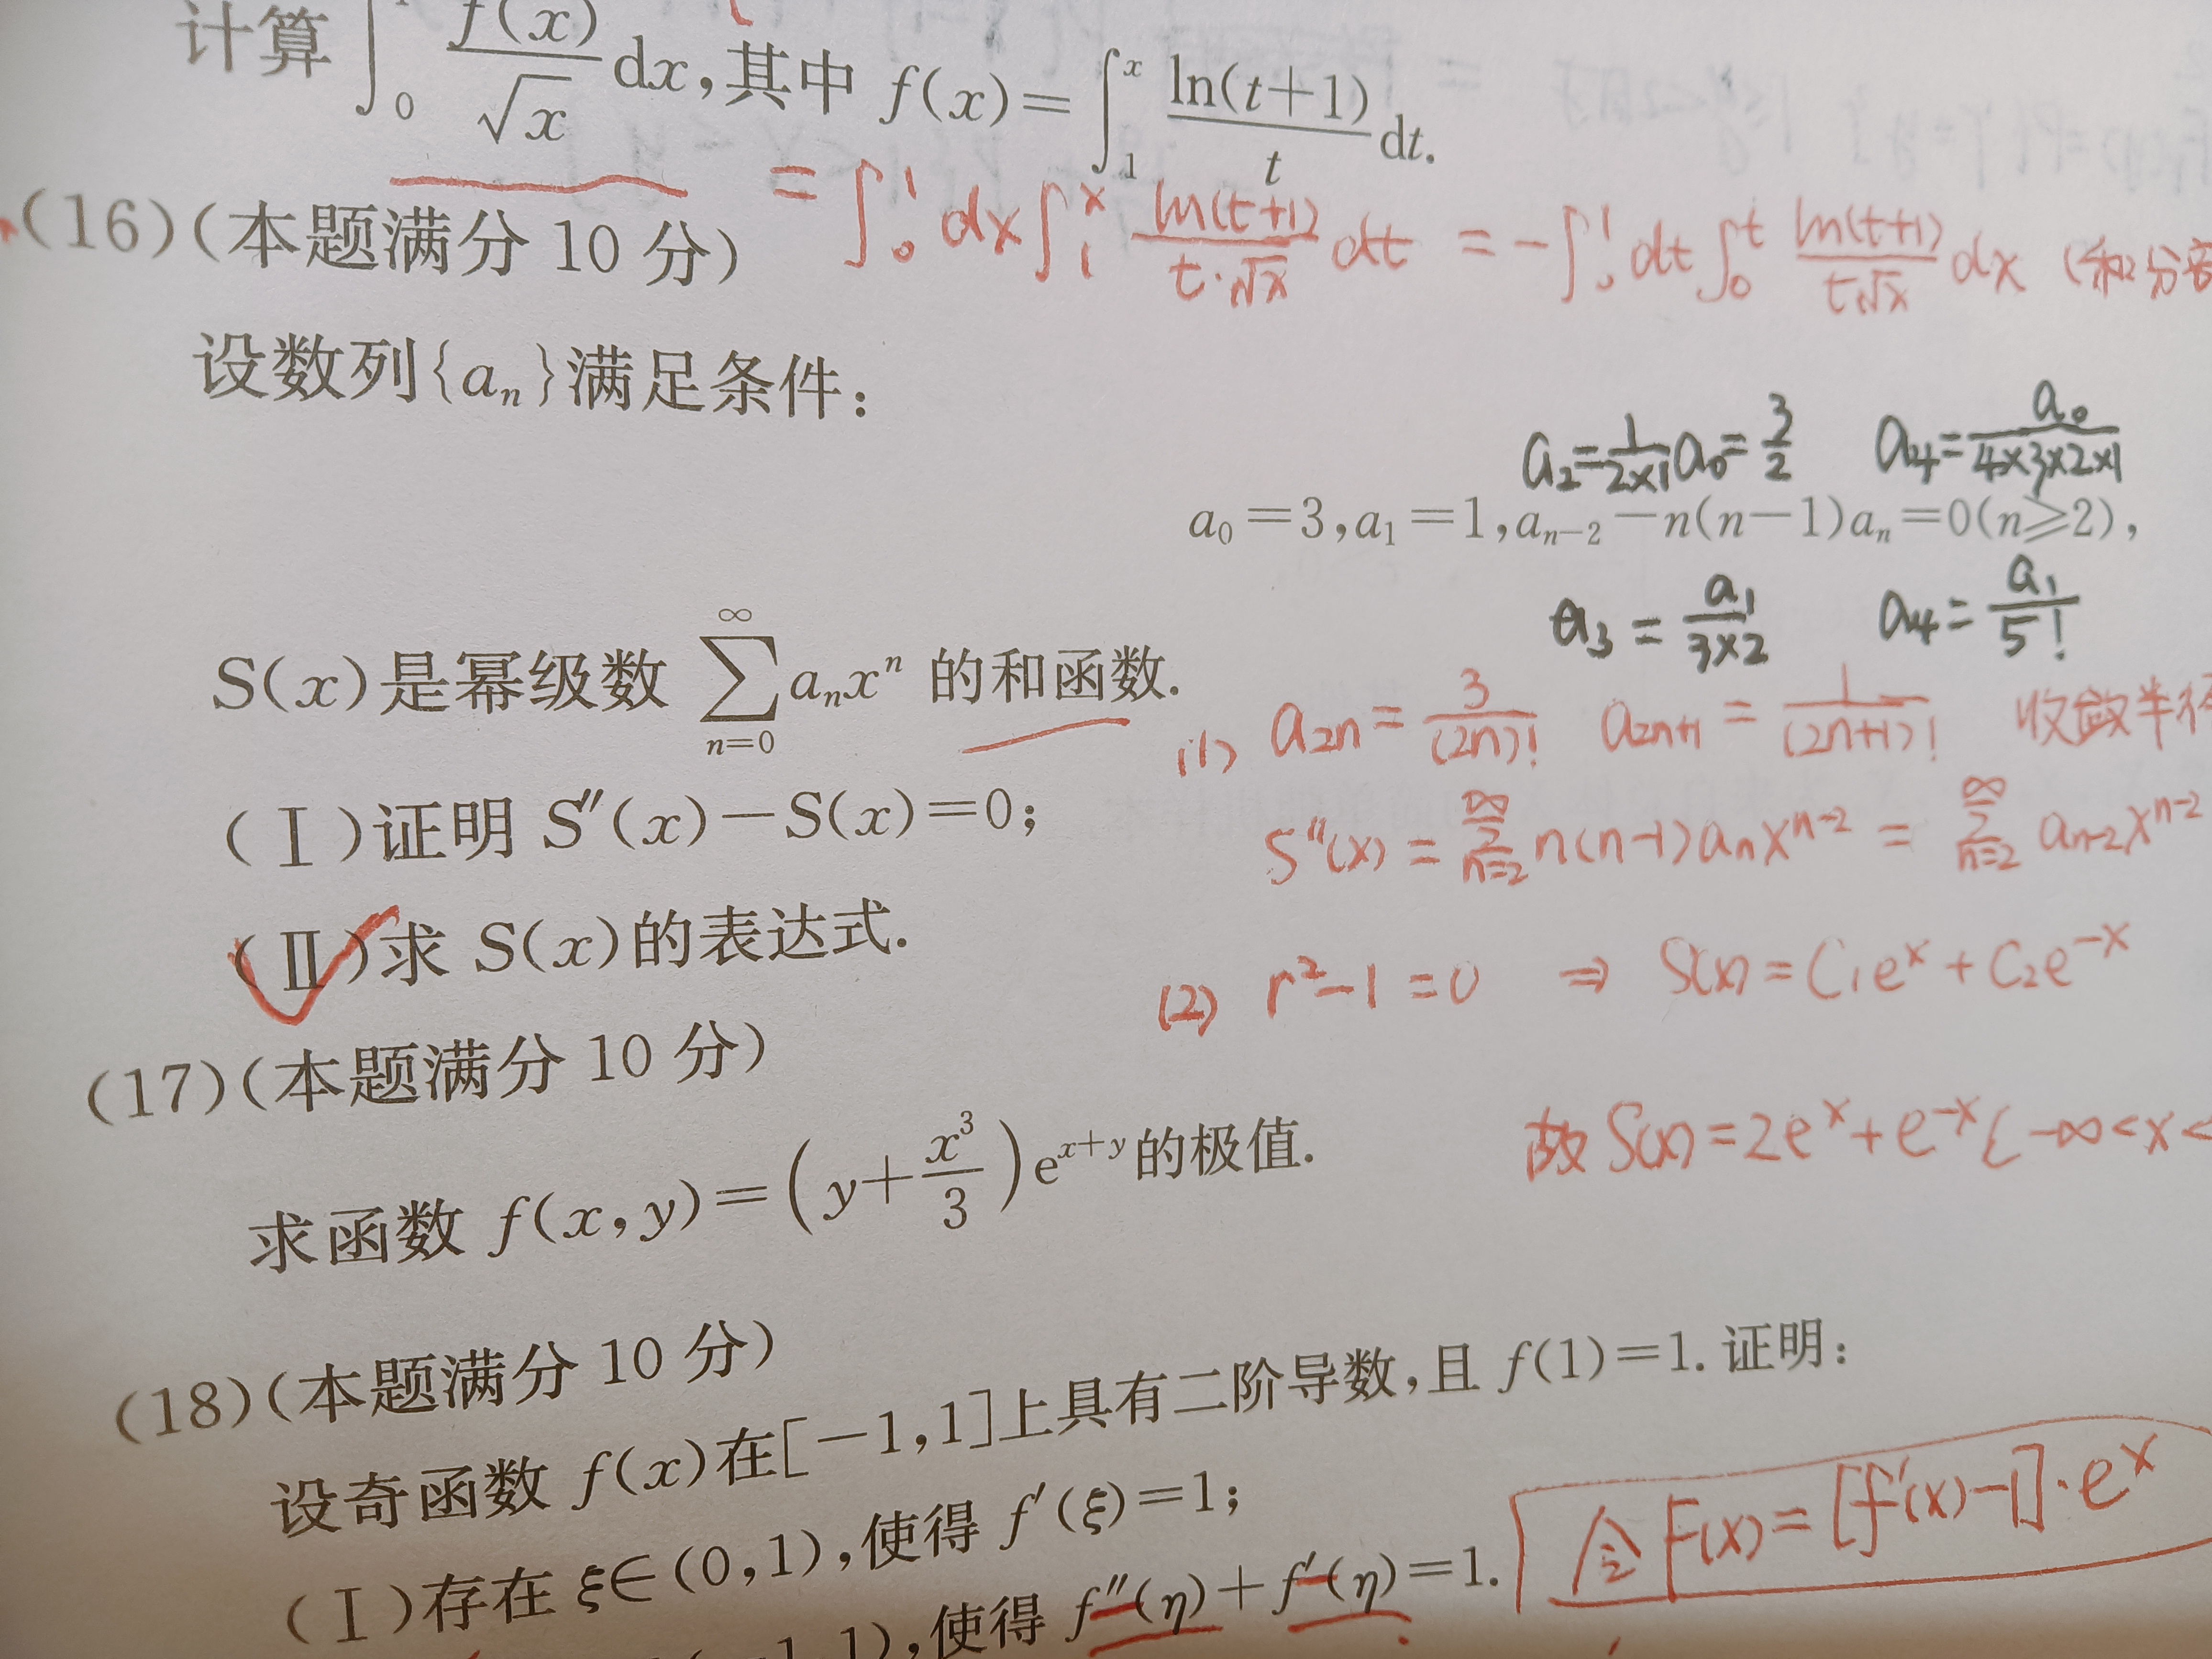 计算 ∫₀ f(x)/√x dx,其中 f(x)=∫₁ˣ ln(t+1)/t dt.
=∫₀¹ dx∫₁ˣ ln(t+1)/(t·√x) dt = -∫₀¹ dt∫₀ᵗ ln(t+1)/(t√x) dx
(16)(本题满分 10 分)
设数列{aₙ}满足条件:
a₂=1/(2×1) a₀=3/2 a₄=a₀/(4×3×2×1)
a₀=3,a₁=1,aₙ₋₂-n(n-1)aₙ=0(n≥2),
a₃=a₁/(3×2) a₄=a₁/5!
S(x)是幂级数 ∑_{n=0}^{∞} aₙxⁿ 的和函数.
(1) a₂ₙ=3/(2n)! a₂ₙ₊₁=1/(2n+1)! 收敛半径
(Ⅰ)证明 S″(x)-S(x)=0;
S″(x)=∑_{n=2}^{∞} n(n-1)aₙxⁿ⁻²=∑_{n=2}^{∞} aₙ₋₂xⁿ⁻²
(Ⅱ)求 S(x)的表达式.
(2) r²-1=0 ⇒ S(x)=C₁eˣ+C₂e⁻ˣ
(17)(本题满分 10 分)
故 S(x)=2eˣ+e⁻ˣ (-∞<x<
求函数 f(x,y)=(y+x³/3)eˣ⁺ʸ的极值.
(18)(本题满分 10 分)
设奇函数 f(x)在[-1,1]上具有二阶导数,且 f(1)=1.证明:
(Ⅰ)存在 ξ∈(0,1),使得 f′(ξ)=1;
令 F(x)=[f′(x)-1]·eˣ
1,1),使得 f″(η)+f′(η)=1.